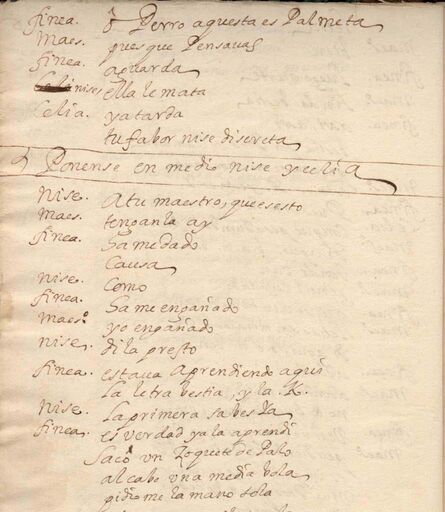 finea. o Perro aquesta es Palmeta
Maes. pues que Pensavas
finea. aguarda
nise. ella le mata
Celia. ya tarda
tu fabor nise discreta
Ponense en medio nise y celia
Nise. A tu maestro, que es esto
Maes. tenganla ay
finea. Ha me dado
causa
nise. Como
finea. Ha me engañado
Maeso. yo engañado
nise. dila presto
finea. estava aprendiendo aqui
la letra bestia, y la K.
Nise. la primera sabes Ya
finea. es verdad ya la aprendi
saco un Zoquete de Palo
al cabo vna media bola
pidiome la mano sola